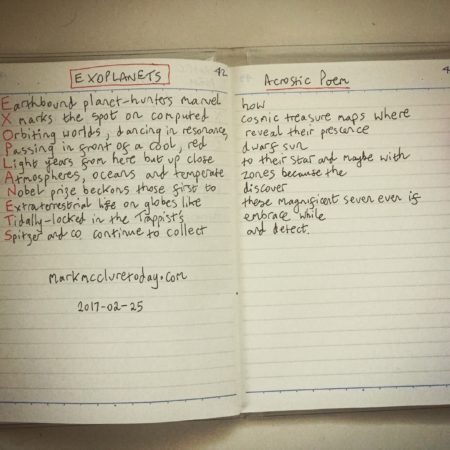 EXOPLANETS
42
Earthbound planet-hunters marvel
X marks the spot on computed
Orbiting worlds, dancing in resonance,
Passing in front of a cool, red
Light years from here but up close
Atmospheres, oceans and temperate
Nobel prize beckons those first to
Extraterrestrial life on globes like
Tidally-locked in the Trappist's
Spitzer and co continue to collect
markmccluretoday.com
2017-02-25
Acrostic Poem
4
how
cosmic treasure maps where
reveal their presence
dwarf sun
to their star and maybe with
zones because the
discover
these magnificent seven even if
embrace while
and detect.